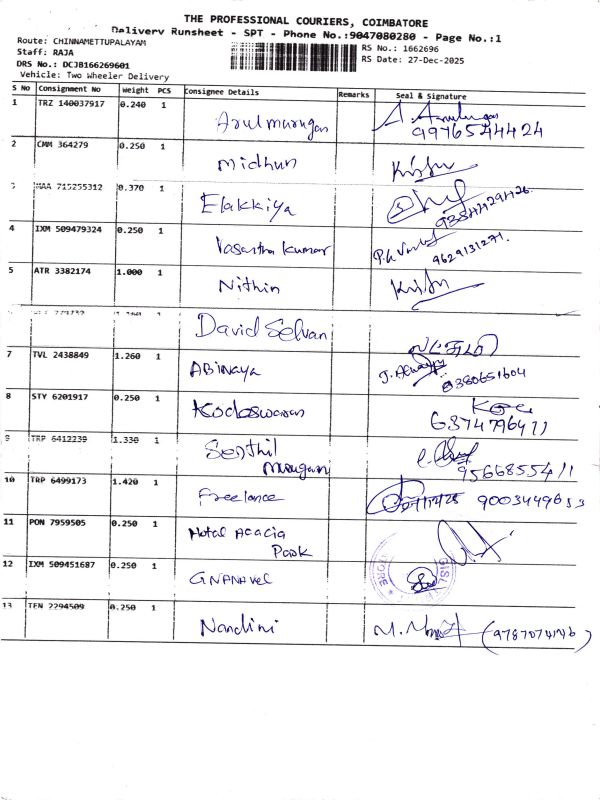 THE PROFESSIONAL COURIERS, COIMBATORE
Delivery Runsheet - SPT - Phone No.:9047080280 - Page No.:1
Route: CHINNAMETTUPALAYAM
RS No.: 1662696
Staff: RAJA
RS Date: 27-Dec-2025
DRS No.: DCJB166269601
Vehicle: Two Wheeler Delivery
S No Consignment No Weight PCS Consignee Details Remarks Seal & Signature
1 TRZ 140037917 0.240 1 Arulmurugan
9976544424
2 CMM 364279 0.250 1 Midhun
3 MAA 715255312 0.370 1 Elakkiya
4 IXM 509479324 0.250 1 Vasantha Kumar 9629131271.
5 ATR 3382174 1.000 1 Nithin
David Selvan
7 TVL 2438849 1.260 1 ABINAYA
8380651604
8 STY 6201917 0.250 1 Kodeswaran
6374796411
9 TRP 6412239 1.330 Senthil
Murugan 9566855411
10 TRP 6499173 1.420 1 Freelance 9003449653
11 PON 7959505 0.250 1 Hotal Acacia
Park
12 IXM 509451687 0.250 1 GNANAVEL
13 TEN 2294509 0.250 1 Nandini (9787074146)